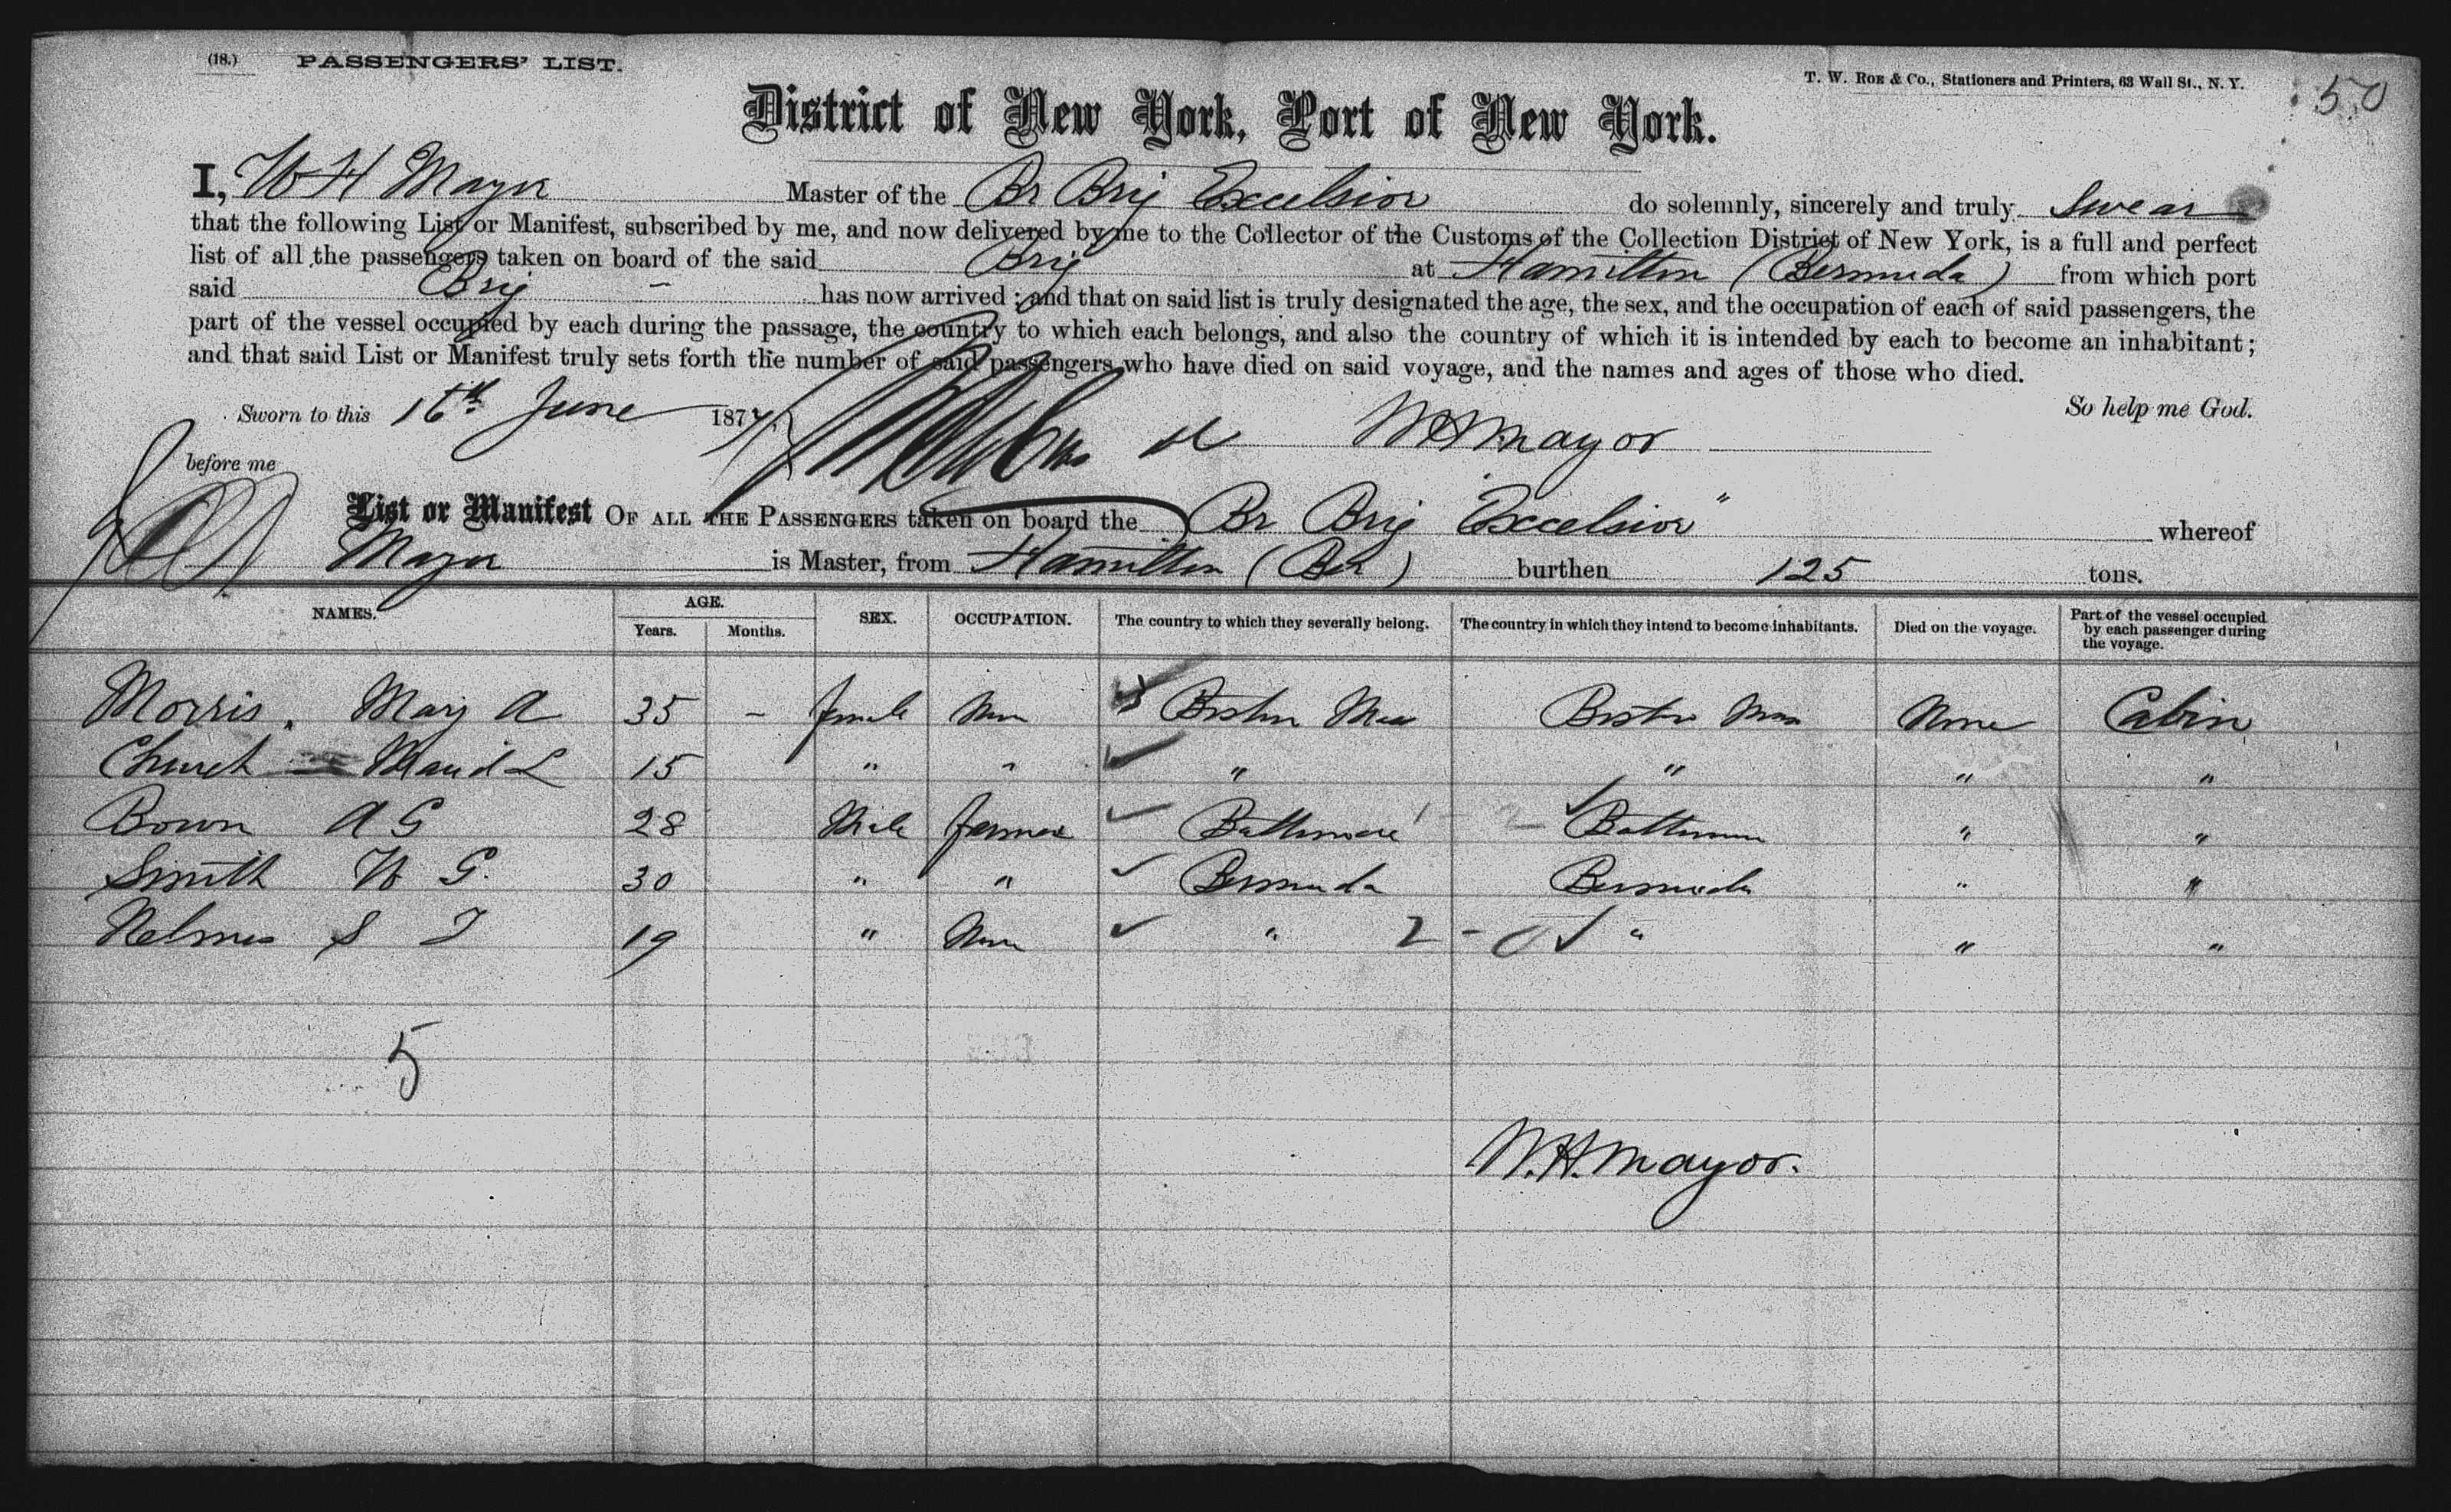 (18.) PASSENGERS' LIST.
T. W. ROE & Co., Stationers and Printers, 63 Wall St., N. Y.
50
District of New York, Port of New York.
I, W H Mayor Master of the Br Brig Excelsior do solemnly, sincerely and truly Swear
that the following List or Manifest, subscribed by me, and now delivered by me to the Collector of the Customs of the Collection District of New York, is a full and perfect
list of all the passengers taken on board of the said Brig at Hamilton (Bermuda) from which port
said Brig - has now arrived; and that on said list is truly designated the age, the sex, and the occupation of each of said passengers, the
part of the vessel occupied by each during the passage, the country to which each belongs, and also the country of which it is intended by each to become an inhabitant;
and that said List or Manifest truly sets forth the number of said passengers who have died on said voyage, and the names and ages of those who died.
Sworn to this 16th June 1877 So help me God.
W H Mayor
before me
List or Manifest OF ALL THE PASSENGERS taken on board the Br Brig Excelsior" whereof
Mayor is Master, from Hamilton (Ber) burthen 125 tons.
NAMES. AGE. Years. Months. SEX. OCCUPATION. The country to which they severally belong. The country in which they intend to become inhabitants. Died on the voyage. Part of the vessel occupied by each passenger during the voyage.
Morris, Mary A 35 - female None Boston Mass Boston Mass None Cabin
Church Maud L 15 " " " " " "
Bown A G 28 Male farmer Baltimore Baltimore " "
Smith W G. 30 " " Bermuda Bermuda " "
Nelmes S T 19 " None " 2 - 0 " " "
5
W.H. Mayor.